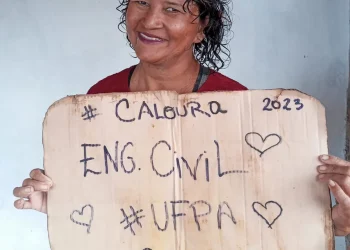 # CALOURA 2023
ENG. CIVIL
#UFPA